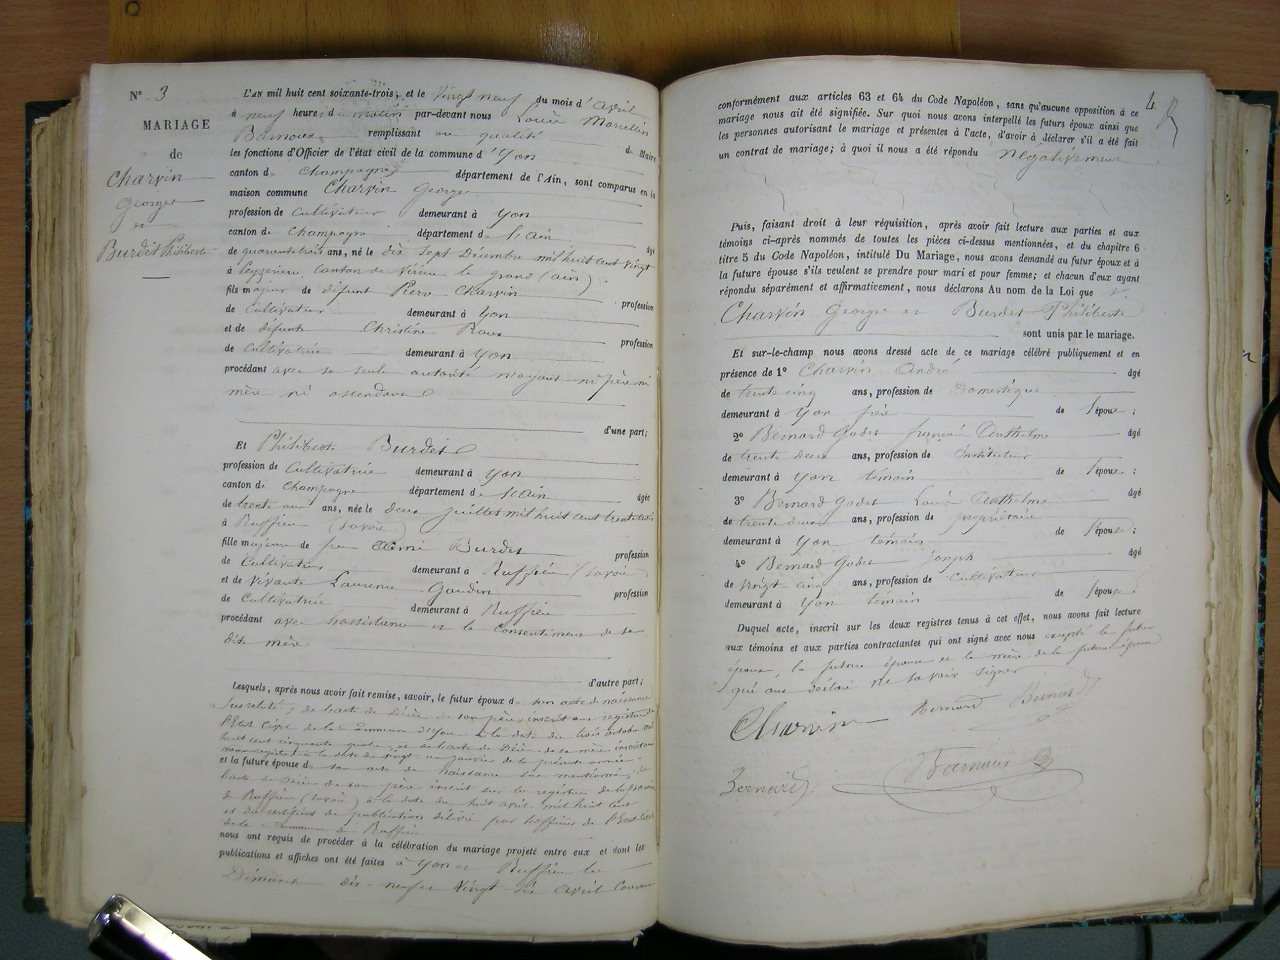 N° 3
MARIAGE
de
Charvin
Georges
et
Burdet Philiberte
L'AN mil huit cent soixante-trois, et le vingt neuf du mois d'avril
à neuf heures du matin par-devant nous Louis Marcellin
remplissant en qualité de Maire
les fonctions d'Officier de l'état civil de la commune d'Yon
canton de Champagne département de l'Ain, sont comparus en la
maison commune Charvin Georges
profession de Cultivateur demeurant à Yon
canton de Champagne département de l'ain âgé
de quarante trois ans, né le dix sept Décembre mil huit cent vingt
à Peyzieu, canton de Virieu le grand (ain)
fils majeur de défunt Charvin profession
de Cultivateur demeurant à Yon
et de défunte Christine Roux profession
de Cultivatrice demeurant à Yon
procédant avec sa seule autorité n'ayant ni père ni
mère ni ascendans
d'une part;
Et Philiberte Burdet
profession de Cultivatrice demeurant à Yon
canton de Champagne département de l'ain âgée
de trente ans, née le deux juillet mil huit cent trente
à Ruffieu (Savoie)
fille majeure de feu Burdet profession
de Cultivateur demeurant à Ruffieu (Savoie)
et de vivante Laurence Gaudin profession
de Cultivatrice demeurant à Ruffieu
procédant avec l'assistance et le consentement de sa
dite mère
d'autre part;
Lesquels, après nous avoir fait remise, savoir, le futur époux de son acte de naissance
susrelaté, de l'acte de Décès de son père inscrit aux registres de
l'Etat Civil de la Commune d'Yon à la date du trois octobre mil
huit cent cinquante quatre, et de l'acte de Décès de sa mère inscrit aux
mêmes registres à la date du vingt un janvier de la présente année
et la future épouse de son acte de naissance sus mentionné, de
l'acte de Décès de son père inscrit sur les registres de la commune
de Ruffieu (Savoie) à la date du huit avril mil huit cent
et du certificat de publication délivré par l'officier de l'Etat civil
de la commune de Ruffieu
nous ont requis de procéder à la célébration du mariage projeté entre eux et dont les
publications et affiches ont été faites à Yon et Ruffieu les
Dimanches dix-neuf et vingt six avril courant
4
conformément aux articles 63 et 64 du Code Napoléon, sans qu'aucune opposition à ce
mariage nous ait été signifiée. Sur quoi nous avons interpellé les futurs époux ainsi que
les personnes autorisant le mariage et présentes à l'acte, d'avoir à déclarer s'il a été fait
un contrat de mariage; à quoi il nous a été répondu négativement
Puis, faisant droit à leur réquisition, après avoir fait lecture aux parties et aux
témoins ci-après nommés de toutes les pièces ci-dessus mentionnées, et du chapitre 6
titre 5 du Code Napoléon, intitulé Du Mariage, nous avons demandé au futur époux et à
la future épouse s'ils veulent se prendre pour mari et pour femme; et chacun d'eux ayant
répondu séparément et affirmativement, nous déclarons Au nom de la Loi que
Charvin Georges et Burdet Philiberte
sont unis par le mariage.
Et sur-le-champ nous avons dressé acte de ce mariage célébré publiquement et en
présence de 1° Charvin André âgé
de trente cinq ans, profession de Domestique
demeurant à Yon frère de l'époux;
2° Bernard Godet Anthelme âgé
de trente deux ans, profession de Instituteur
demeurant à Yon témoin de l'époux;
3° Bernard Godet Louis Anthelme âgé
de trente deux ans, profession de propriétaire
demeurant à Yon témoin de l'épouse;
4° Bernard Godet Joseph âgé
de vingt cinq ans, profession de Cultivateur
demeurant à Yon témoin de l'épouse;
Duquel acte, inscrit sur les deux registres tenus à cet effet, nous avons fait lecture
aux témoins et aux parties contractantes qui ont signé avec nous excepté le futur
époux, la future épouse et la mère de la future épouse
qui ont déclaré ne savoir signer
Charvin Bernard Bernard
Bernard